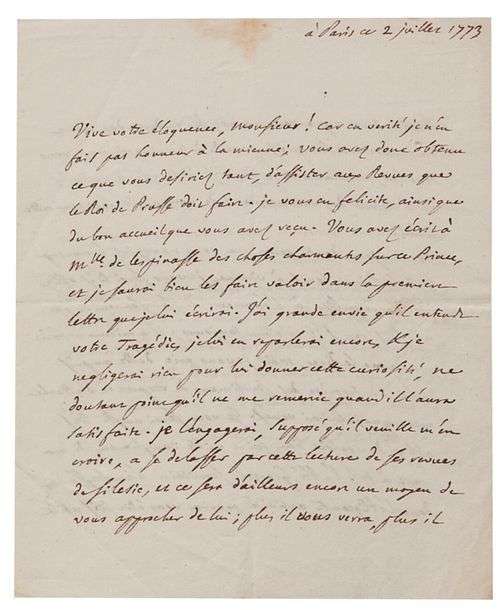 à Paris ce 2 juillet 1773
Vive votre éloquence, monsieur ! Car en verité je n'en
fais pas honneur à la mienne ; vous avez donc obtenu
ce que vous desiriez tant, d'assister aux Revues que
le Roi de Prusse doit faire. je vous en felicite, ainsi que
du bon accueil que vous avez reçu. Vous avez écrit à
Mlle de lespinasse des choses charmantes sur ce Prince,
et je saurai bien les faire valoir dans la premiere
lettre que je lui écrirai. J'ai grande envie qu'il entende
votre Tragédie, je lui en reparlerai encore, & je
negligerai rien pour lui donner cette curiosité, ne
doutant point qu'il ne me remercie quand il l'aura
satisfaite. je l'engagerai, supposé qu'il veuille m'en
croire, a se delasser par cette lecture de ses revues
de silesie, et ce sera d'ailleurs encore un moyen de
vous approcher de lui ; plus il vous verra, plus il